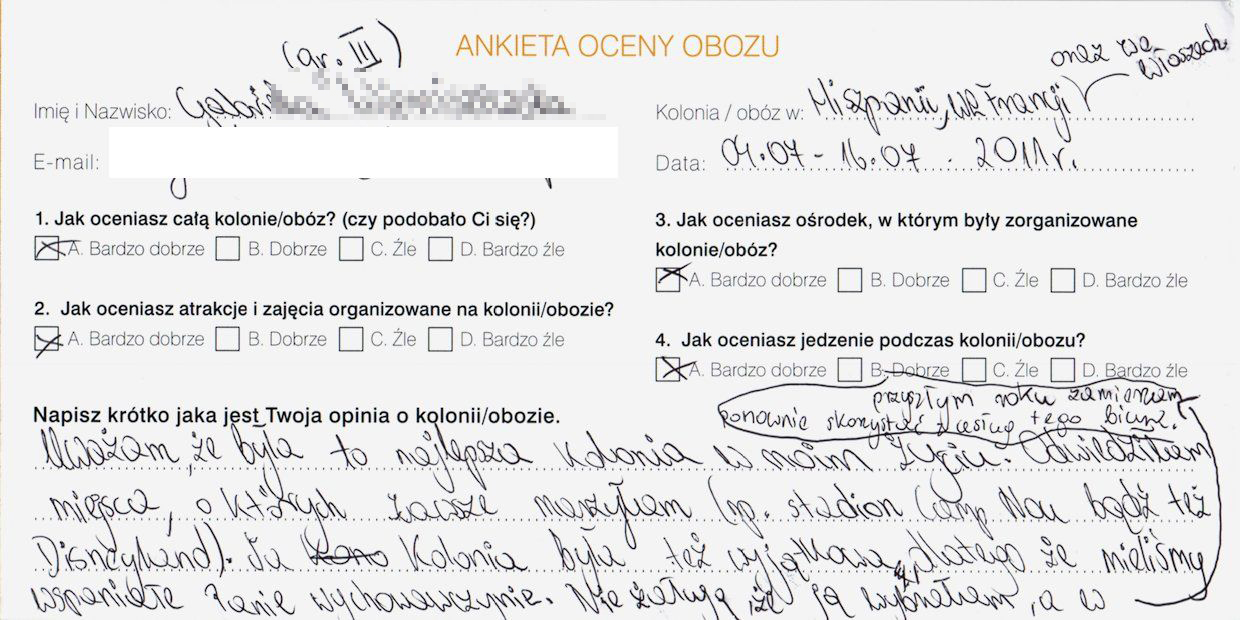 (gr. III)
ANKIETA OCENY OBOZU
oraz we Włoszech
Imię i Nazwisko:
Kolonia / obóz w: Hiszpanii, we Francji
E-mail:
Data: 04.07 - 16.07. 2011r.
1. Jak oceniasz całą kolonie/obóz? (czy podobało Ci się?)
A. Bardzo dobrze B. Dobrze C. Źle D. Bardzo źle
2. Jak oceniasz atrakcje i zajęcia organizowane na kolonii/obozie?
A. Bardzo dobrze B. Dobrze C. Źle D. Bardzo źle
3. Jak oceniasz ośrodek, w którym były zorganizowane
kolonie/obóz?
A. Bardzo dobrze B. Dobrze C. Źle D. Bardzo źle
4. Jak oceniasz jedzenie podczas kolonii/obozu?
A. Bardzo dobrze B. Dobrze C. Źle D. Bardzo źle
Napisz krótko jaka jest Twoja opinia o kolonii/obozie.
Uważam, że była to najlepsza kolonia w moim życiu. Odwiedziłam
miejsca, o których zawsze marzyłam (np. stadion Camp Nou bądź też
Disneyland). Ta Kolonia była też wyjątkowa, dlatego że mieliśmy
wspaniałe Panie wychowawczynie. Nie żałuję, że ją wybrałam, a w
przyszłym roku zamierzam
ponownie skorzystać z usług tego biura.